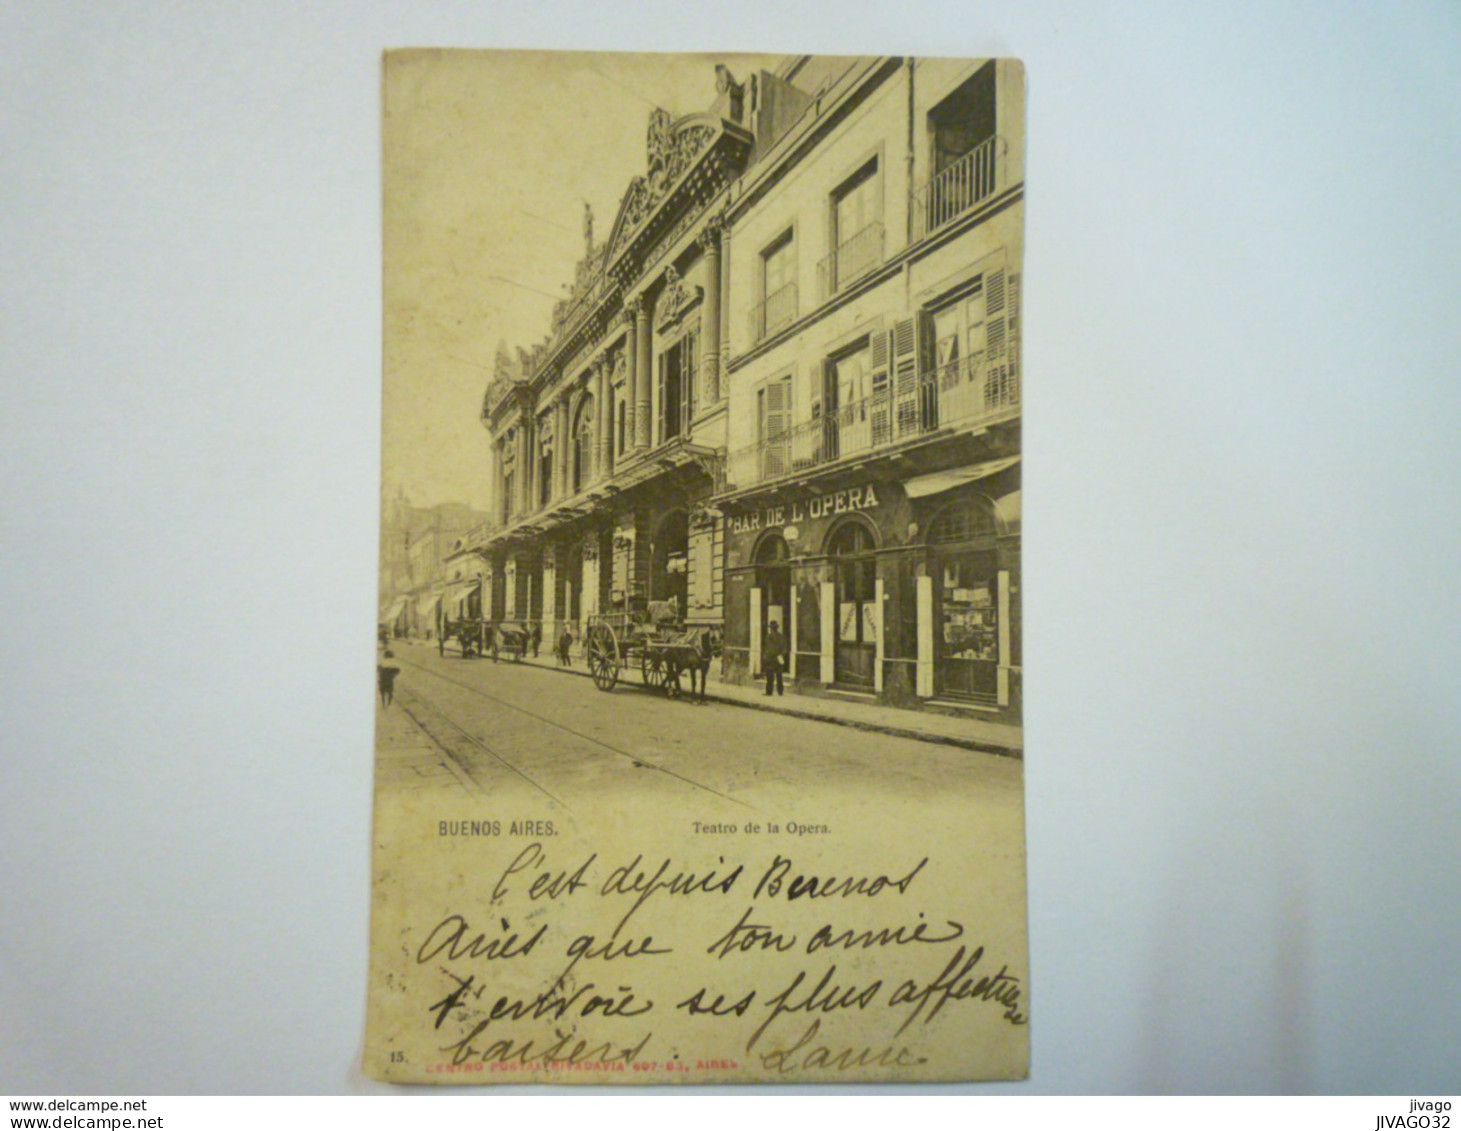 BAR DE L'OPERA
BUENOS AIRES.
Teatro de la Opera.
C'est depuis Buenos
Aires que ton amie
t'envoie ses plus affectueux
baisers.
15.
CENTRO POSTAL RIVADAVIA AIRES
www.delcampe.net
www.delcampe.net
jivago
JIVAGO32